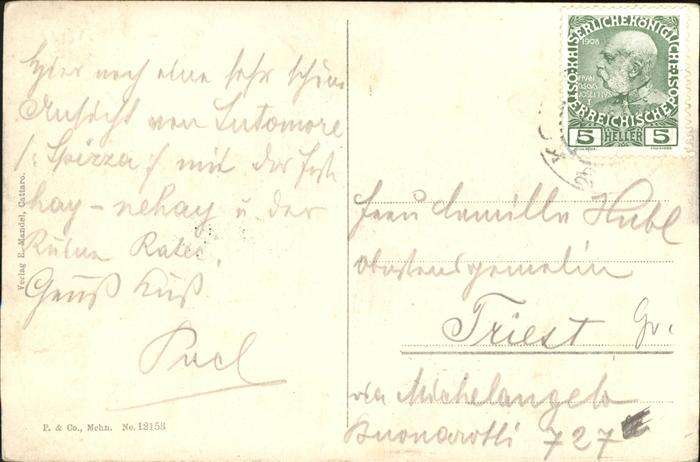 Hier noch eine sehr schöne
Ansicht von Sutomore
/: Spizza :/ mit der Feste
hay-nehay u. der
Ruine Ratac.
Gruß Kuß.
Verlag E. Mandel, Cattaro.
P. & Co., Nehn. No. 12153
KAISERLICHE KÖNIGLICHE ÖSTERREICHISCHE POST
1908
FRANZ JOSEF I
5 HELLER 5
Frau Camilla Hubl
Oberstensgemalin
Triest
via Michelangelo
Buonarotti 727